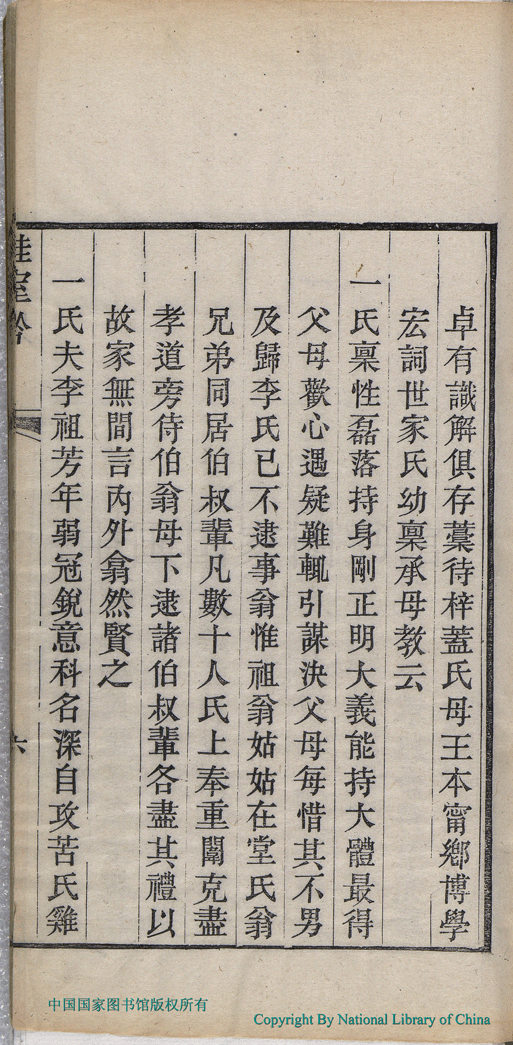 卓有識解俱存藁待梓蓋氏母王本甯鄉博學
宏詞世家氏幼稟承母教云
一氏稟性磊落持身剛正明大義能持大體最得
父母歡心遇疑難輒引謀決父母每惜其不男
及歸李氏已不逮事翁惟祖翁姑姑在堂氏翁
兄弟同居伯叔輩凡數十人氏上奉重闈克盡
孝道旁侍伯翁母下逮諸伯叔輩各盡其禮以
故家無間言內外翕然賢之
一氏夫李祖芳年弱冠銳意科名深自攻苦氏雞
六
中国国家图书馆版权所有
Copyright By National Library of China